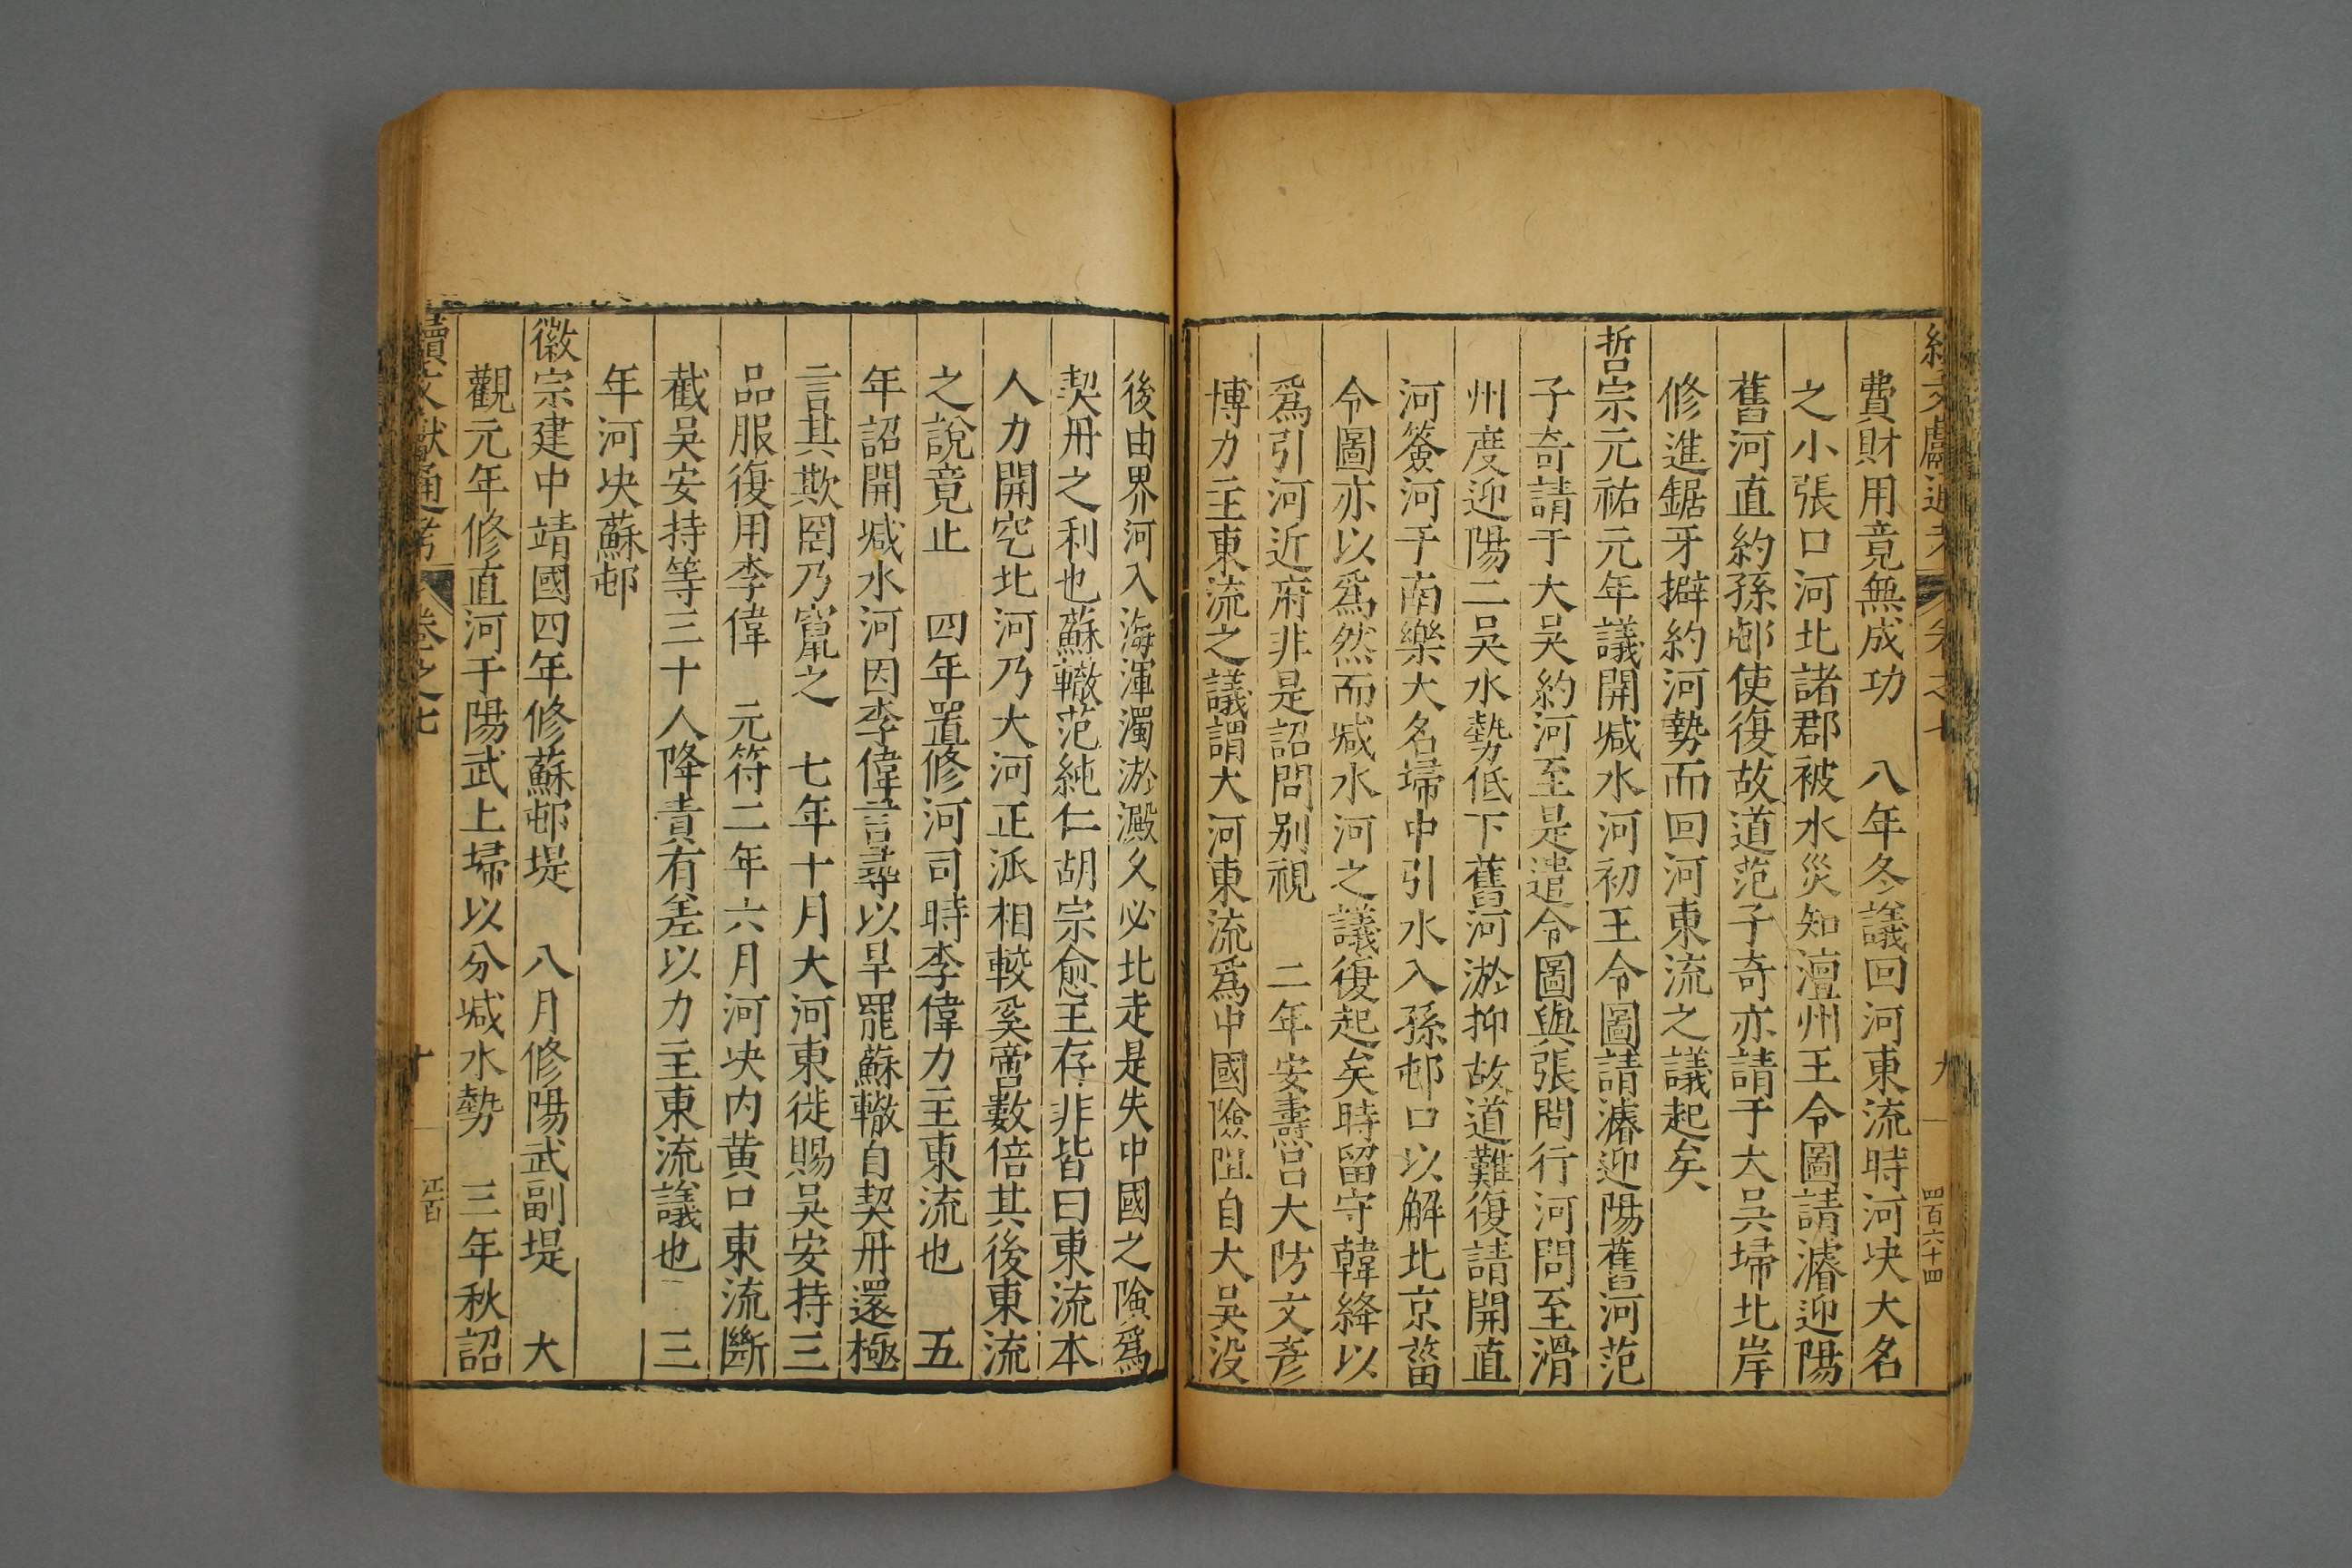 費財用竟無成功　八年冬議回河東流時河决大名
之小張口河北諸郡被水災知澶州王令圖請濬迎陽
舊河直約孫邨使復故道范子奇亦請于大吴埽北岸
修進鋸牙擗約河勢而回河東流之議起矣
哲宗元祐元年議開减水河初王令圖請濬迎陽舊河范
子奇請于大吴約河至是遣令圖與張問行河問至滑
州度迎陽二吴水勢低下舊河淤抑故道難復請開直
河簽河于南樂大名埽中引水入孫邨口以解北京菑
令圖亦以爲然而减水河之議復起矣時留守韓絳以
爲引河近府非是詔問别視　二年安燾吕大防文彦
博力主東流之議謂大河東流爲中國險阻自大吴没
後由界河入海渾濁淤澱久必北走是失中國之險爲
契丹之利也蘇轍范純仁胡宗愈王存非皆曰東流本
人力開穵北河乃大河正派相較奚啻數倍其後東流
之說竟止　四年置修河司時李偉力主東流也　五
年詔開减水河因李偉言尋以旱罷蘇轍自契丹還極
言其欺罔乃竄之　七年十月大河東徙賜吴安持三
品服復用李偉　元符二年六月河决内黄口東流斷
截吴安持等三十人降責有差以力主東流議也　三
年河决蘇邨
徽宗建中靖國四年修蘇邨堤　八月修陽武副堤　大
觀元年修直河于陽武上埽以分减水勢　三年秋詔
續文獻通考　卷之七　十